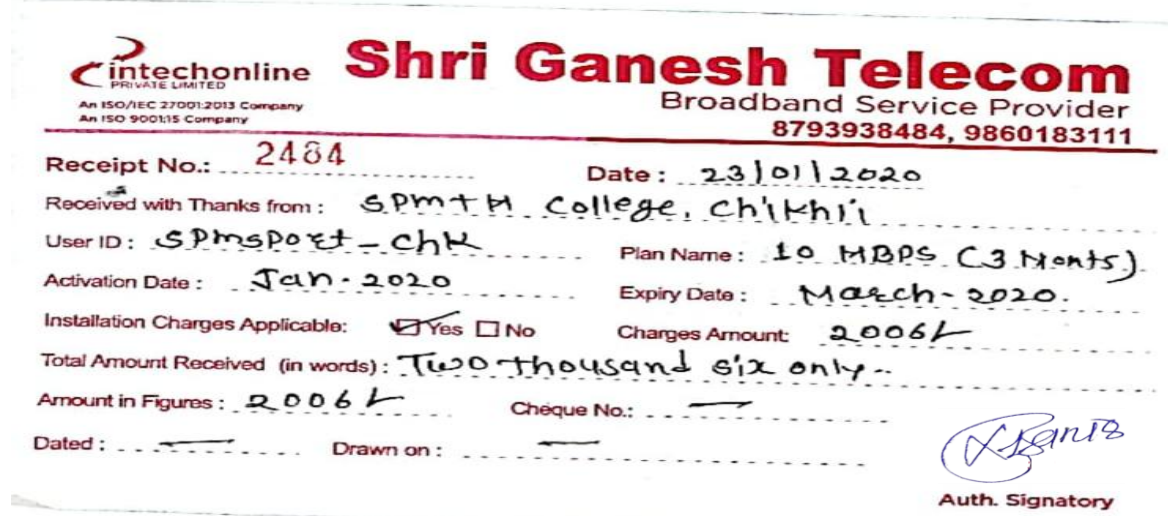 intechonline
PRIVATE LIMITED
An ISO/IEC 27001:2013 Company
An ISO 9001:15 Company
Shri Ganesh Telecom
Broadband Service Provider
8793938484, 9860183111
Receipt No.: 2484 Date : 23/01/2020
Received with Thanks from : SPM+H College, Chikhli
User ID : SPMSPORT-CHK Plan Name : 10 MBPS (3 Monts)
Activation Date : Jan-2020 Expiry Date : March-2020.
Installation Charges Applicable: Yes No Charges Amount: 2006/-
Total Amount Received (in words) : Two thousand six only-
Amount in Figures : 2006/- Cheque No.: —
Dated : — Drawn on : —
Auth. Signatory